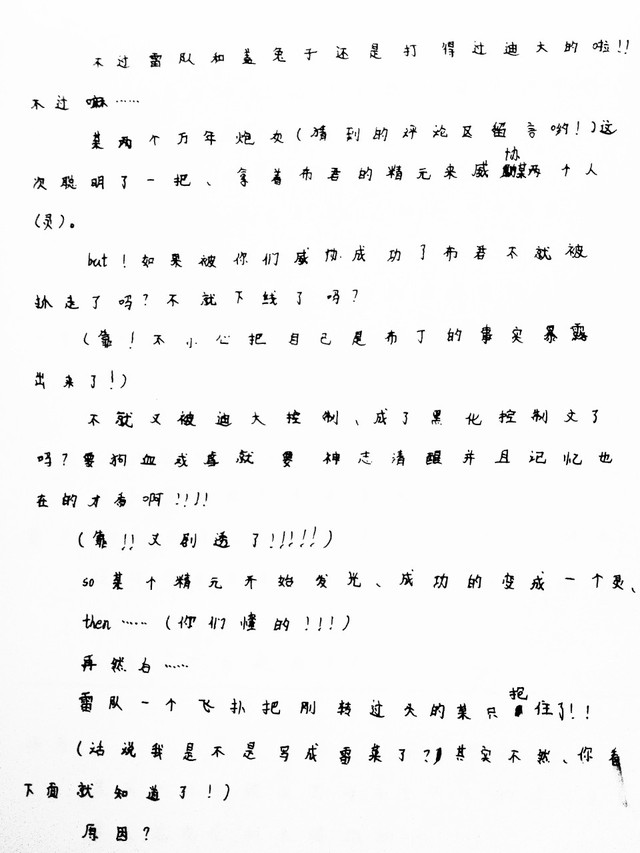 不过雷队和盖兔子还是打得过迪大的啦!!
不过嘛……
某两个万年炮灰(猜到的评论区留言哟!)这
次聪明了一把、拿着布君的精元来威协某两个人
(灵)。
but!如果被你们威协成功了布君不就被
扒走了吗?不就下线了吗?
(靠!不小心把自己是布丁的事实暴露
出来了!)
不就又被迪大控制、成了黑化控制文了
吗?要狗血戏喜就要神志清醒并且记忆也
在的才香啊!!!!
(靠!!又剧透了!!!!!!)
so某个精元开始发光、成功的变成一个灵、
then……(你们懂的!!!)
再然后……
雷队一个飞扑把刚转过头的某只抱住了!!
(话说我是不是写成雷某了?其实不然、你看
下面就知道了!)
原因?